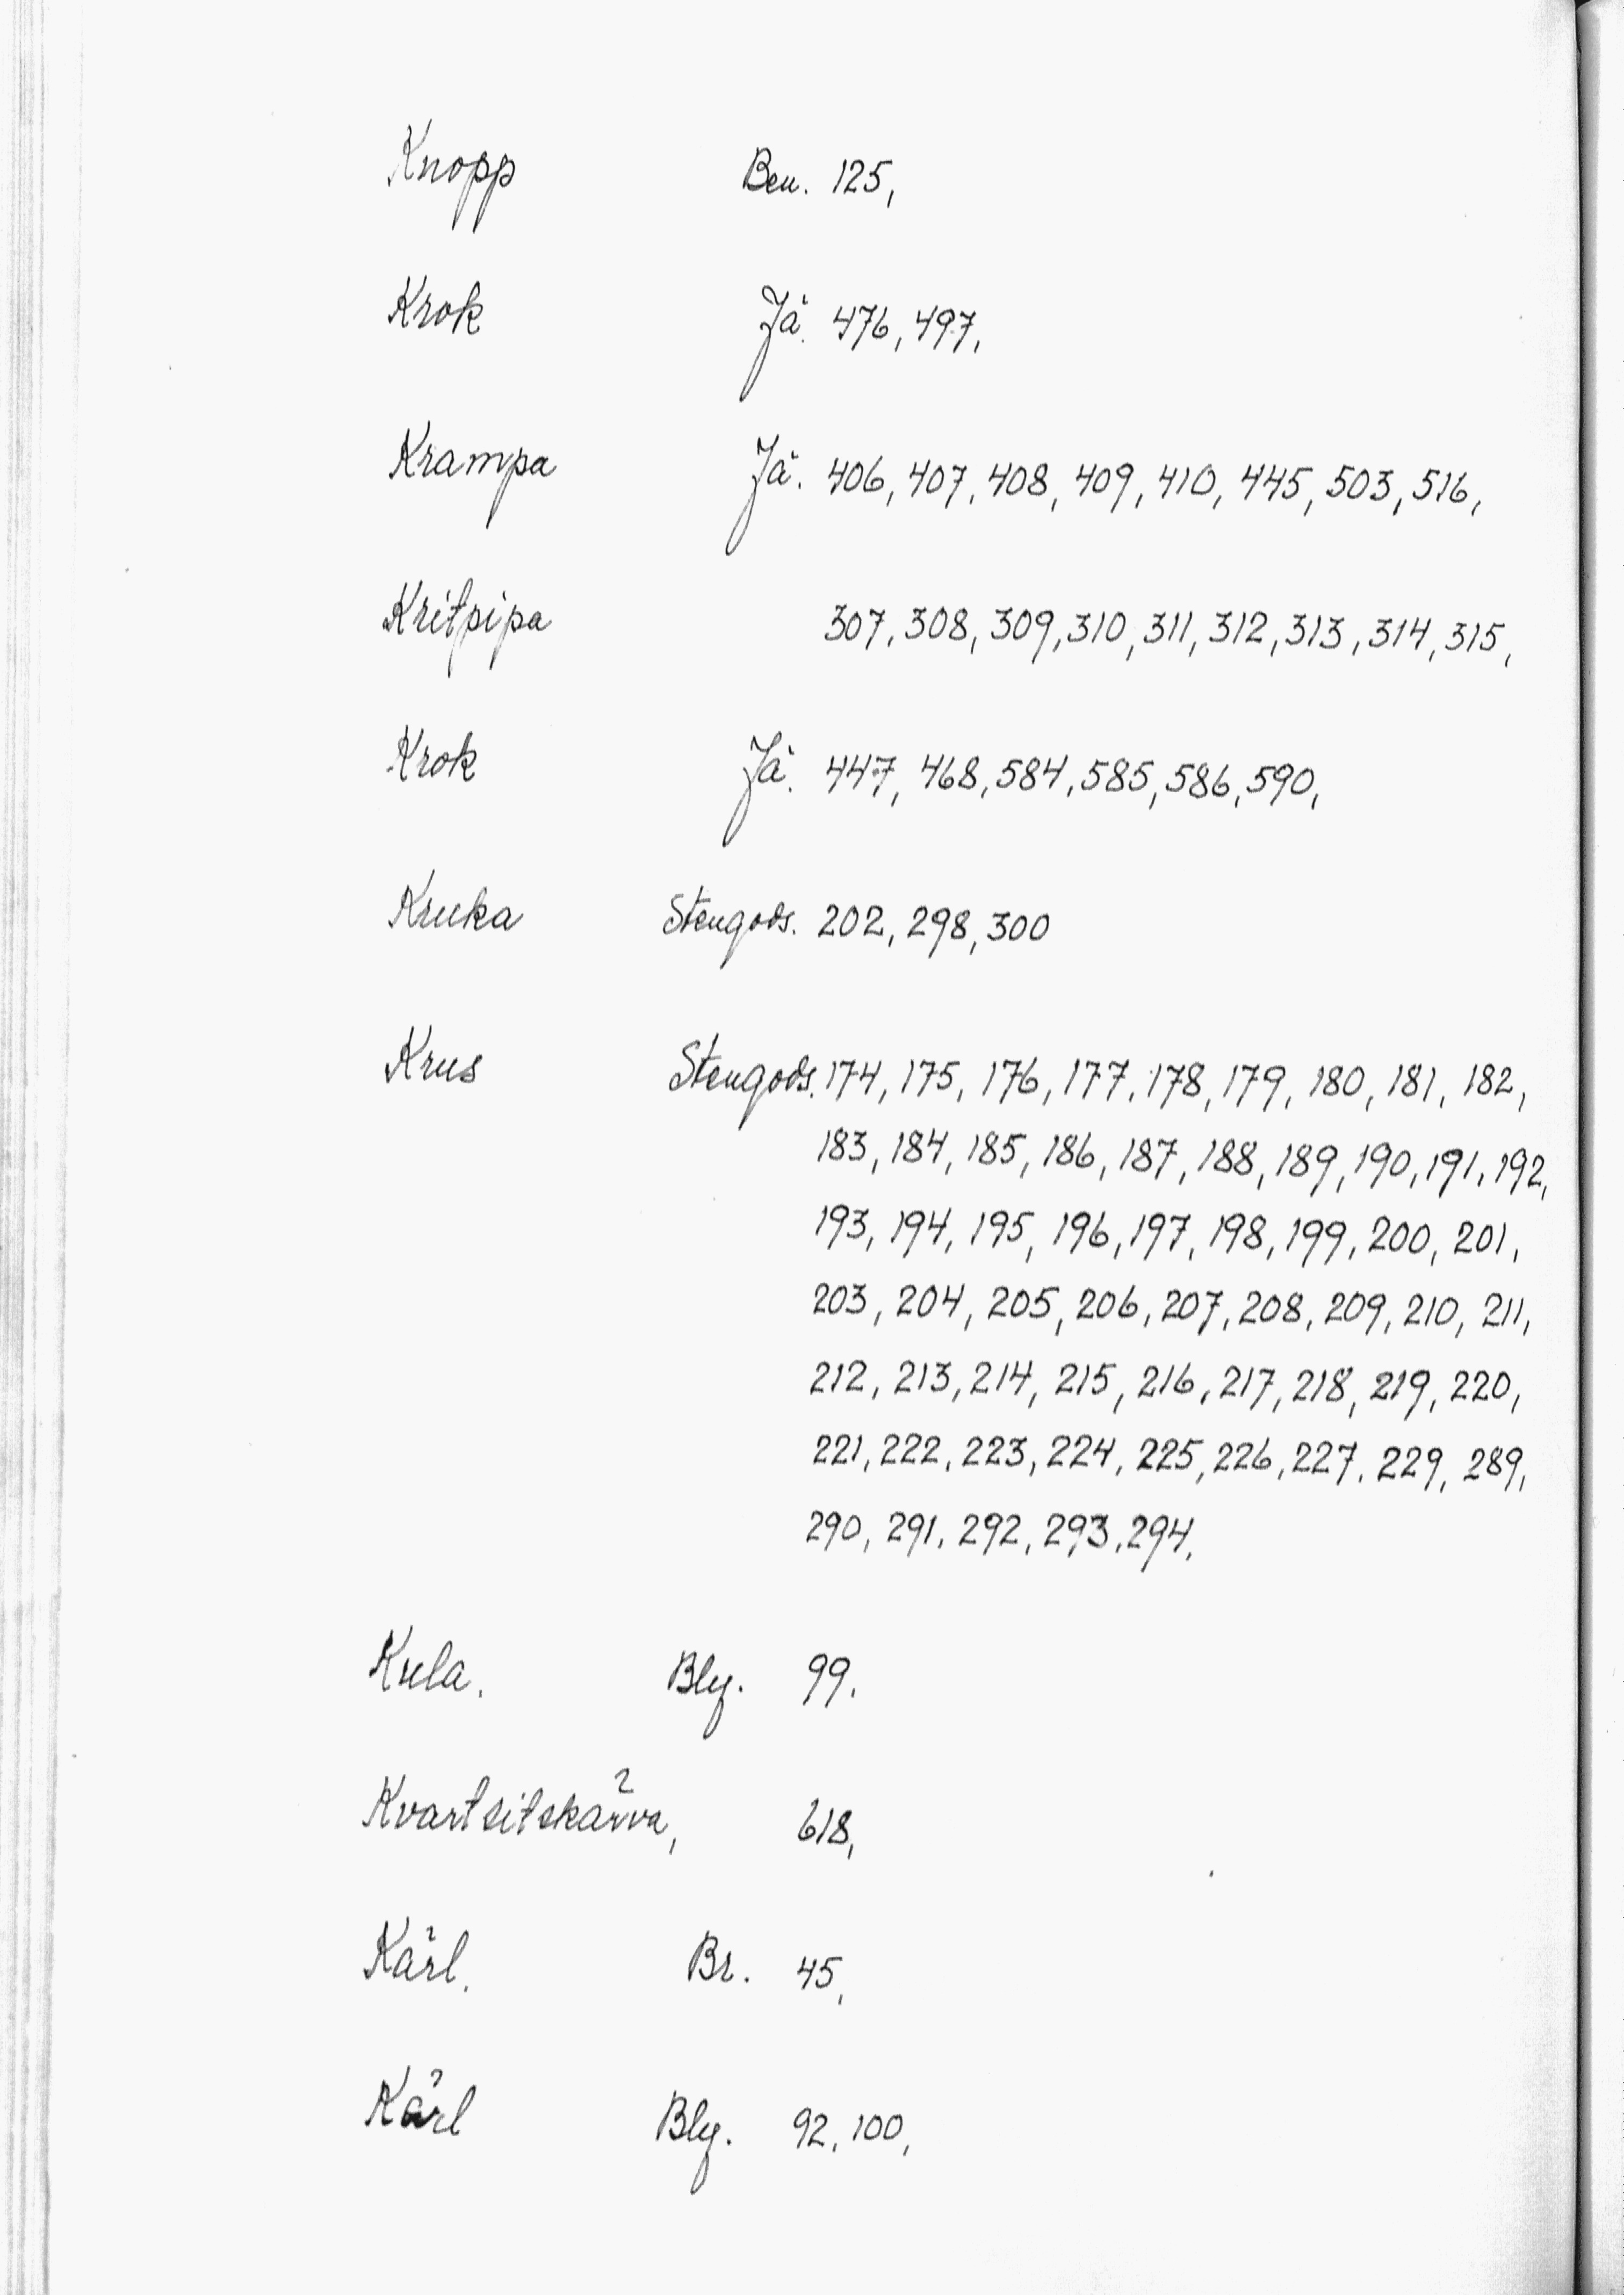 Knopp Ben. 125,
Krok Jä. 476, 497,
Krampa Jä. 406, 407, 408, 409, 410, 445, 503, 516,
Kritpipa 307, 308, 309, 310, 311, 312, 313, 314, 315,
Krok Jä. 447, 468, 584, 585, 586, 590,
Kruka Stengods. 202, 298, 300
Krus Stengods. 174, 175, 176, 177, 178, 179, 180, 181, 182,
183, 184, 185, 186, 187, 188, 189, 190, 191, 192,
193, 194, 195, 196, 197, 198, 199, 200, 201,
203, 204, 205, 206, 207, 208, 209, 210, 211,
212, 213, 214, 215, 216, 217, 218, 219, 220,
221, 222, 223, 224, 225, 226, 227, 229, 289,
290, 291, 292, 293, 294,
Kula. Bly. 99.
Kvartsitskärva, 618,
Kärl. Br. 45,
Kärl Bly. 92, 100,